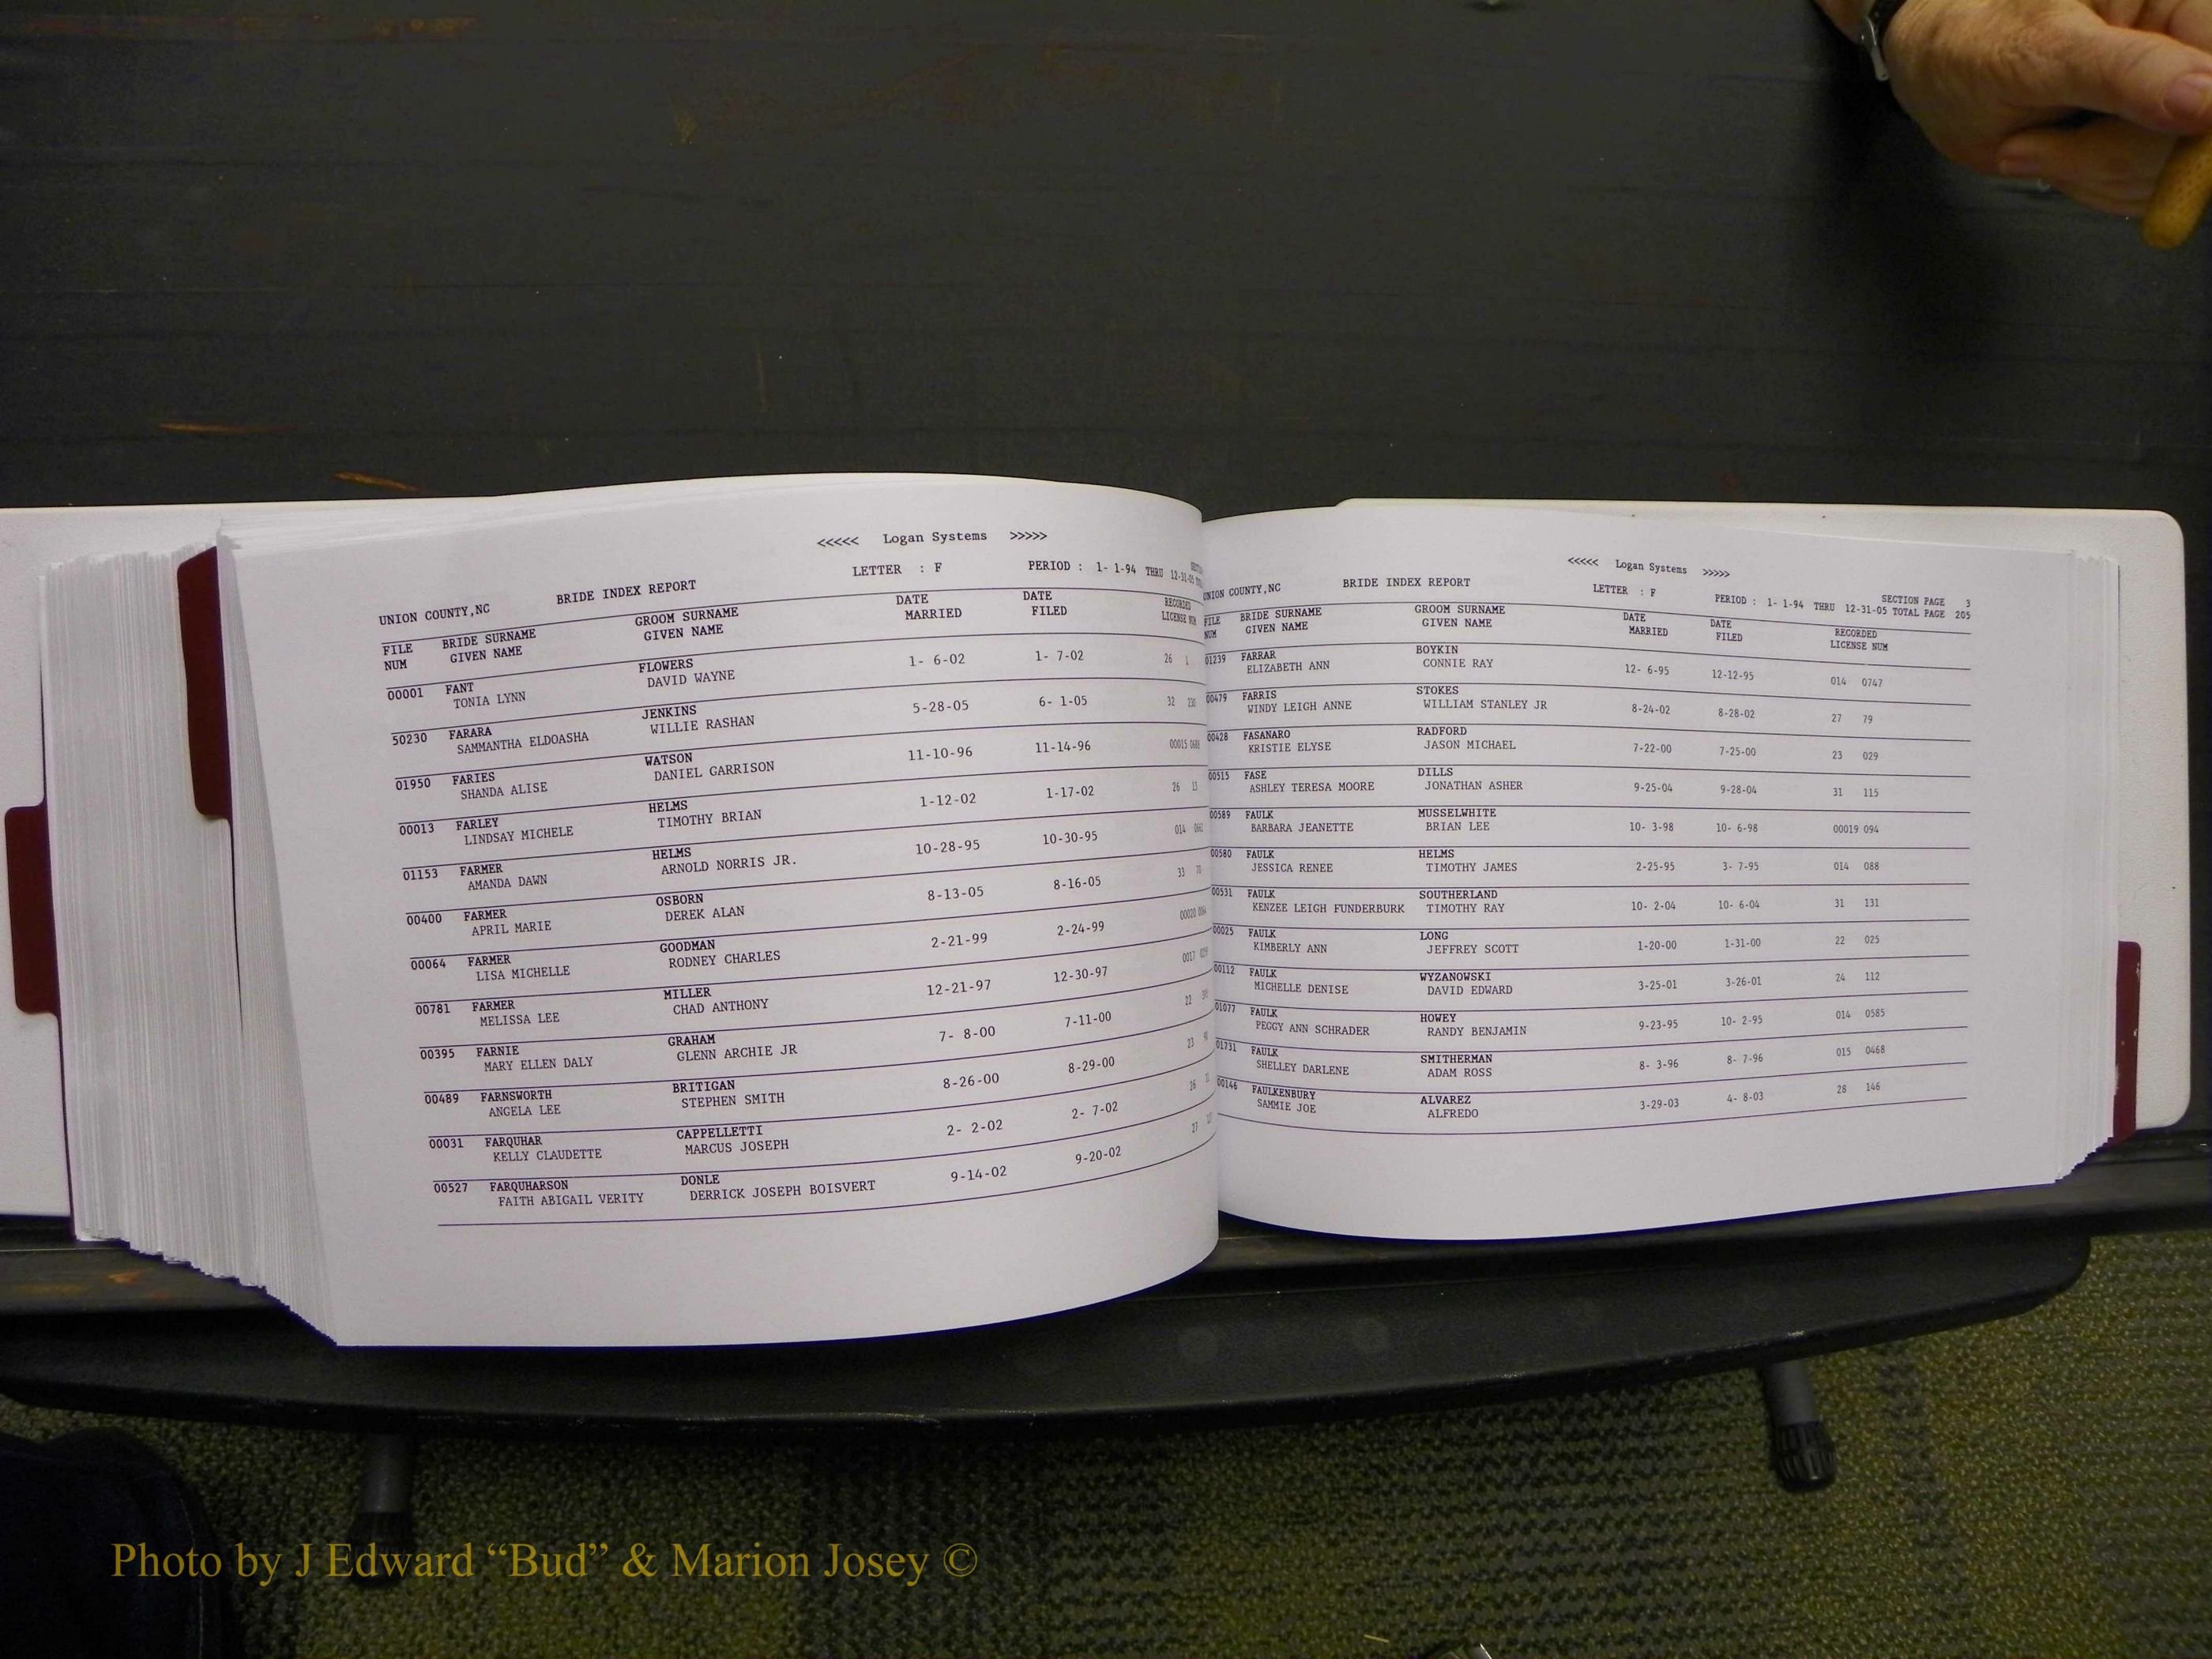 <<<<< Logan Systems >>>>>
UNION COUNTY,NC BRIDE INDEX REPORT LETTER : F PERIOD : 1- 1-94 THRU 12-31-05
FILE BRIDE SURNAME GROOM SURNAME DATE DATE RECORDED
NUM GIVEN NAME GIVEN NAME MARRIED FILED LICENSE NUM
00001 FANT FLOWERS 1- 6-02 1- 7-02 26 1
TONIA LYNN DAVID WAYNE
50230 FARARA JENKINS 5-28-05 6- 1-05 32
SAMMANTHA ELDOASHA WILLIE RASHAN
01950 FARIES WATSON 11-10-96 11-14-96 00015
SHANDA ALISE DANIEL GARRISON
00013 FARLEY HELMS 1-12-02 1-17-02 26 13
LINDSAY MICHELE TIMOTHY BRIAN
01153 FARMER HELMS 10-28-95 10-30-95 014
AMANDA DAWN ARNOLD NORRIS JR.
00400 FARMER OSBORN 8-13-05 8-16-05 33
APRIL MARIE DEREK ALAN
00064 FARMER GOODMAN 2-21-99 2-24-99 00020
LISA MICHELLE RODNEY CHARLES
00781 FARMER MILLER 12-21-97 12-30-97 0017
MELISSA LEE CHAD ANTHONY
00395 FARNIE GRAHAM 7- 8-00 7-11-00 22
MARY ELLEN DALY GLENN ARCHIE JR
00489 FARNSWORTH BRITIGAN 8-26-00 8-29-00 23
ANGELA LEE STEPHEN SMITH
00031 FARQUHAR CAPPELLETTI 2- 2-02 2- 7-02 26
KELLY CLAUDETTE MARCUS JOSEPH
00527 FARQUHARSON DONLE 9-14-02 9-20-02 27
FAITH ABIGAIL VERITY DERRICK JOSEPH BOISVERT
<<<<< Logan Systems >>>>>
SECTION PAGE 3
UNION COUNTY,NC BRIDE INDEX REPORT LETTER : F PERIOD : 1- 1-94 THRU 12-31-05 TOTAL PAGE 205
FILE BRIDE SURNAME GROOM SURNAME DATE DATE RECORDED
NUM GIVEN NAME GIVEN NAME MARRIED FILED LICENSE NUM
01239 FARRAR BOYKIN 12- 6-95 12-12-95 014 0747
ELIZABETH ANN CONNIE RAY
00479 FARRIS STOKES 8-24-02 8-28-02 27 79
WINDY LEIGH ANNE WILLIAM STANLEY JR
00428 FASANARO RADFORD 7-22-00 7-25-00 23 029
KRISTIE ELYSE JASON MICHAEL
00515 FASE DILLS 9-25-04 9-28-04 31 115
ASHLEY TERESA MOORE JONATHAN ASHER
00589 FAULK MUSSELWHITE 10- 3-98 10- 6-98 00019 094
BARBARA JEANETTE BRIAN LEE
00580 FAULK HELMS 2-25-95 3- 7-95 014 088
JESSICA RENEE TIMOTHY JAMES
00531 FAULK SOUTHERLAND 10- 2-04 10- 6-04 31 131
KENZEE LEIGH FUNDERBURK TIMOTHY RAY
00025 FAULK LONG 1-20-00 1-31-00 22 025
KIMBERLY ANN JEFFREY SCOTT
00112 FAULK WYZANOWSKI 3-25-01 3-26-01 24 112
MICHELLE DENISE DAVID EDWARD
01077 FAULK HOWEY 9-23-95 10- 2-95 014 0585
PEGGY ANN SCHRADER RANDY BENJAMIN
01731 FAULK SMITHERMAN 8- 3-96 8- 7-96 015 0468
SHELLEY DARLENE ADAM ROSS
00146 FAULKENBURY ALVAREZ 3-29-03 4- 8-03 28 146
SAMMIE JOE ALFREDO
Photo by J Edward “Bud” & Marion Josey ©